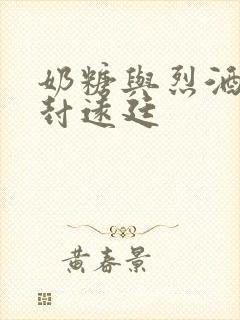 奶糖與烈酒
封遠廷
黃春景